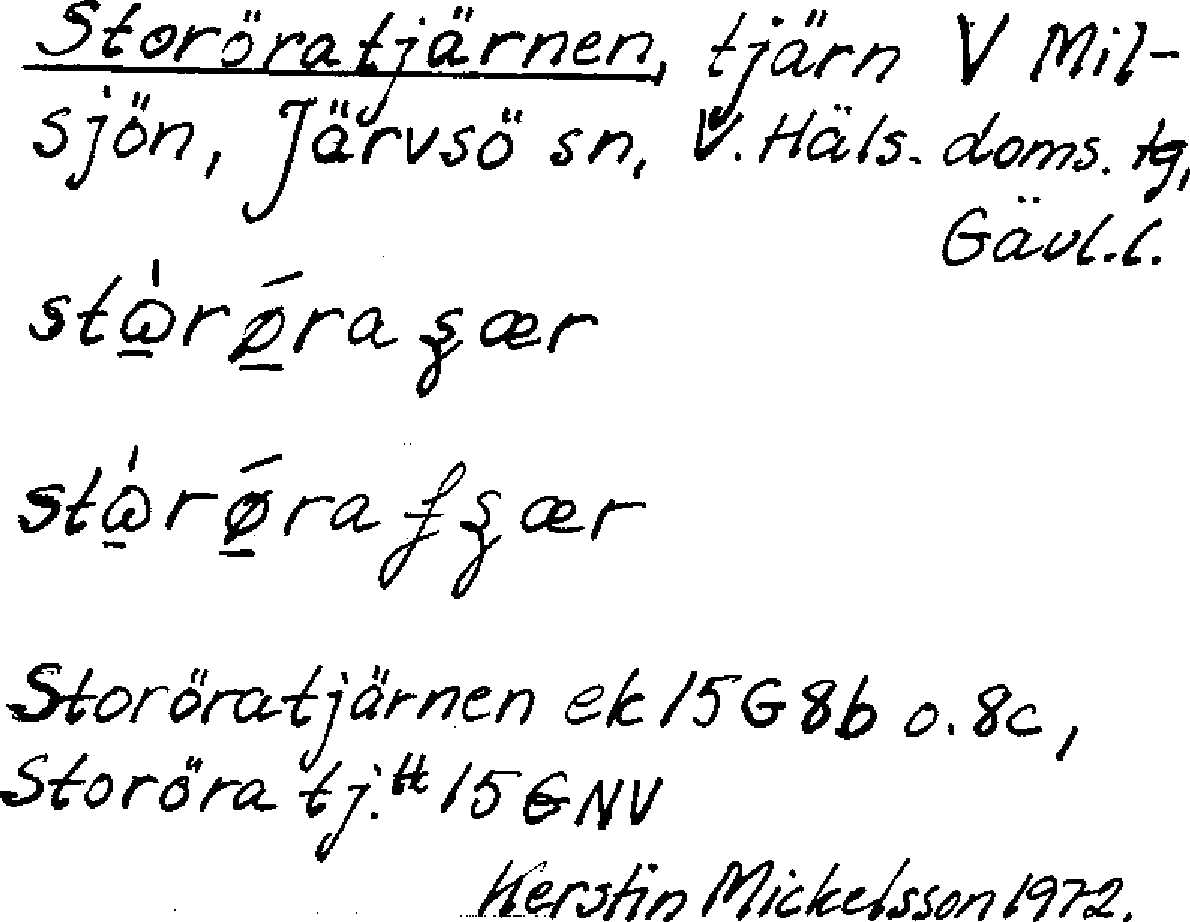 Storöratjärnen, tjärn V Mil-
sjön, Järvsö sn, V. Häls. doms. tg,
Gävl.l.
Storöratjärnen ek 15G8b o. 8c,
Storöra tj. tt 15GNV
Kerstin Mickelsson 1972.